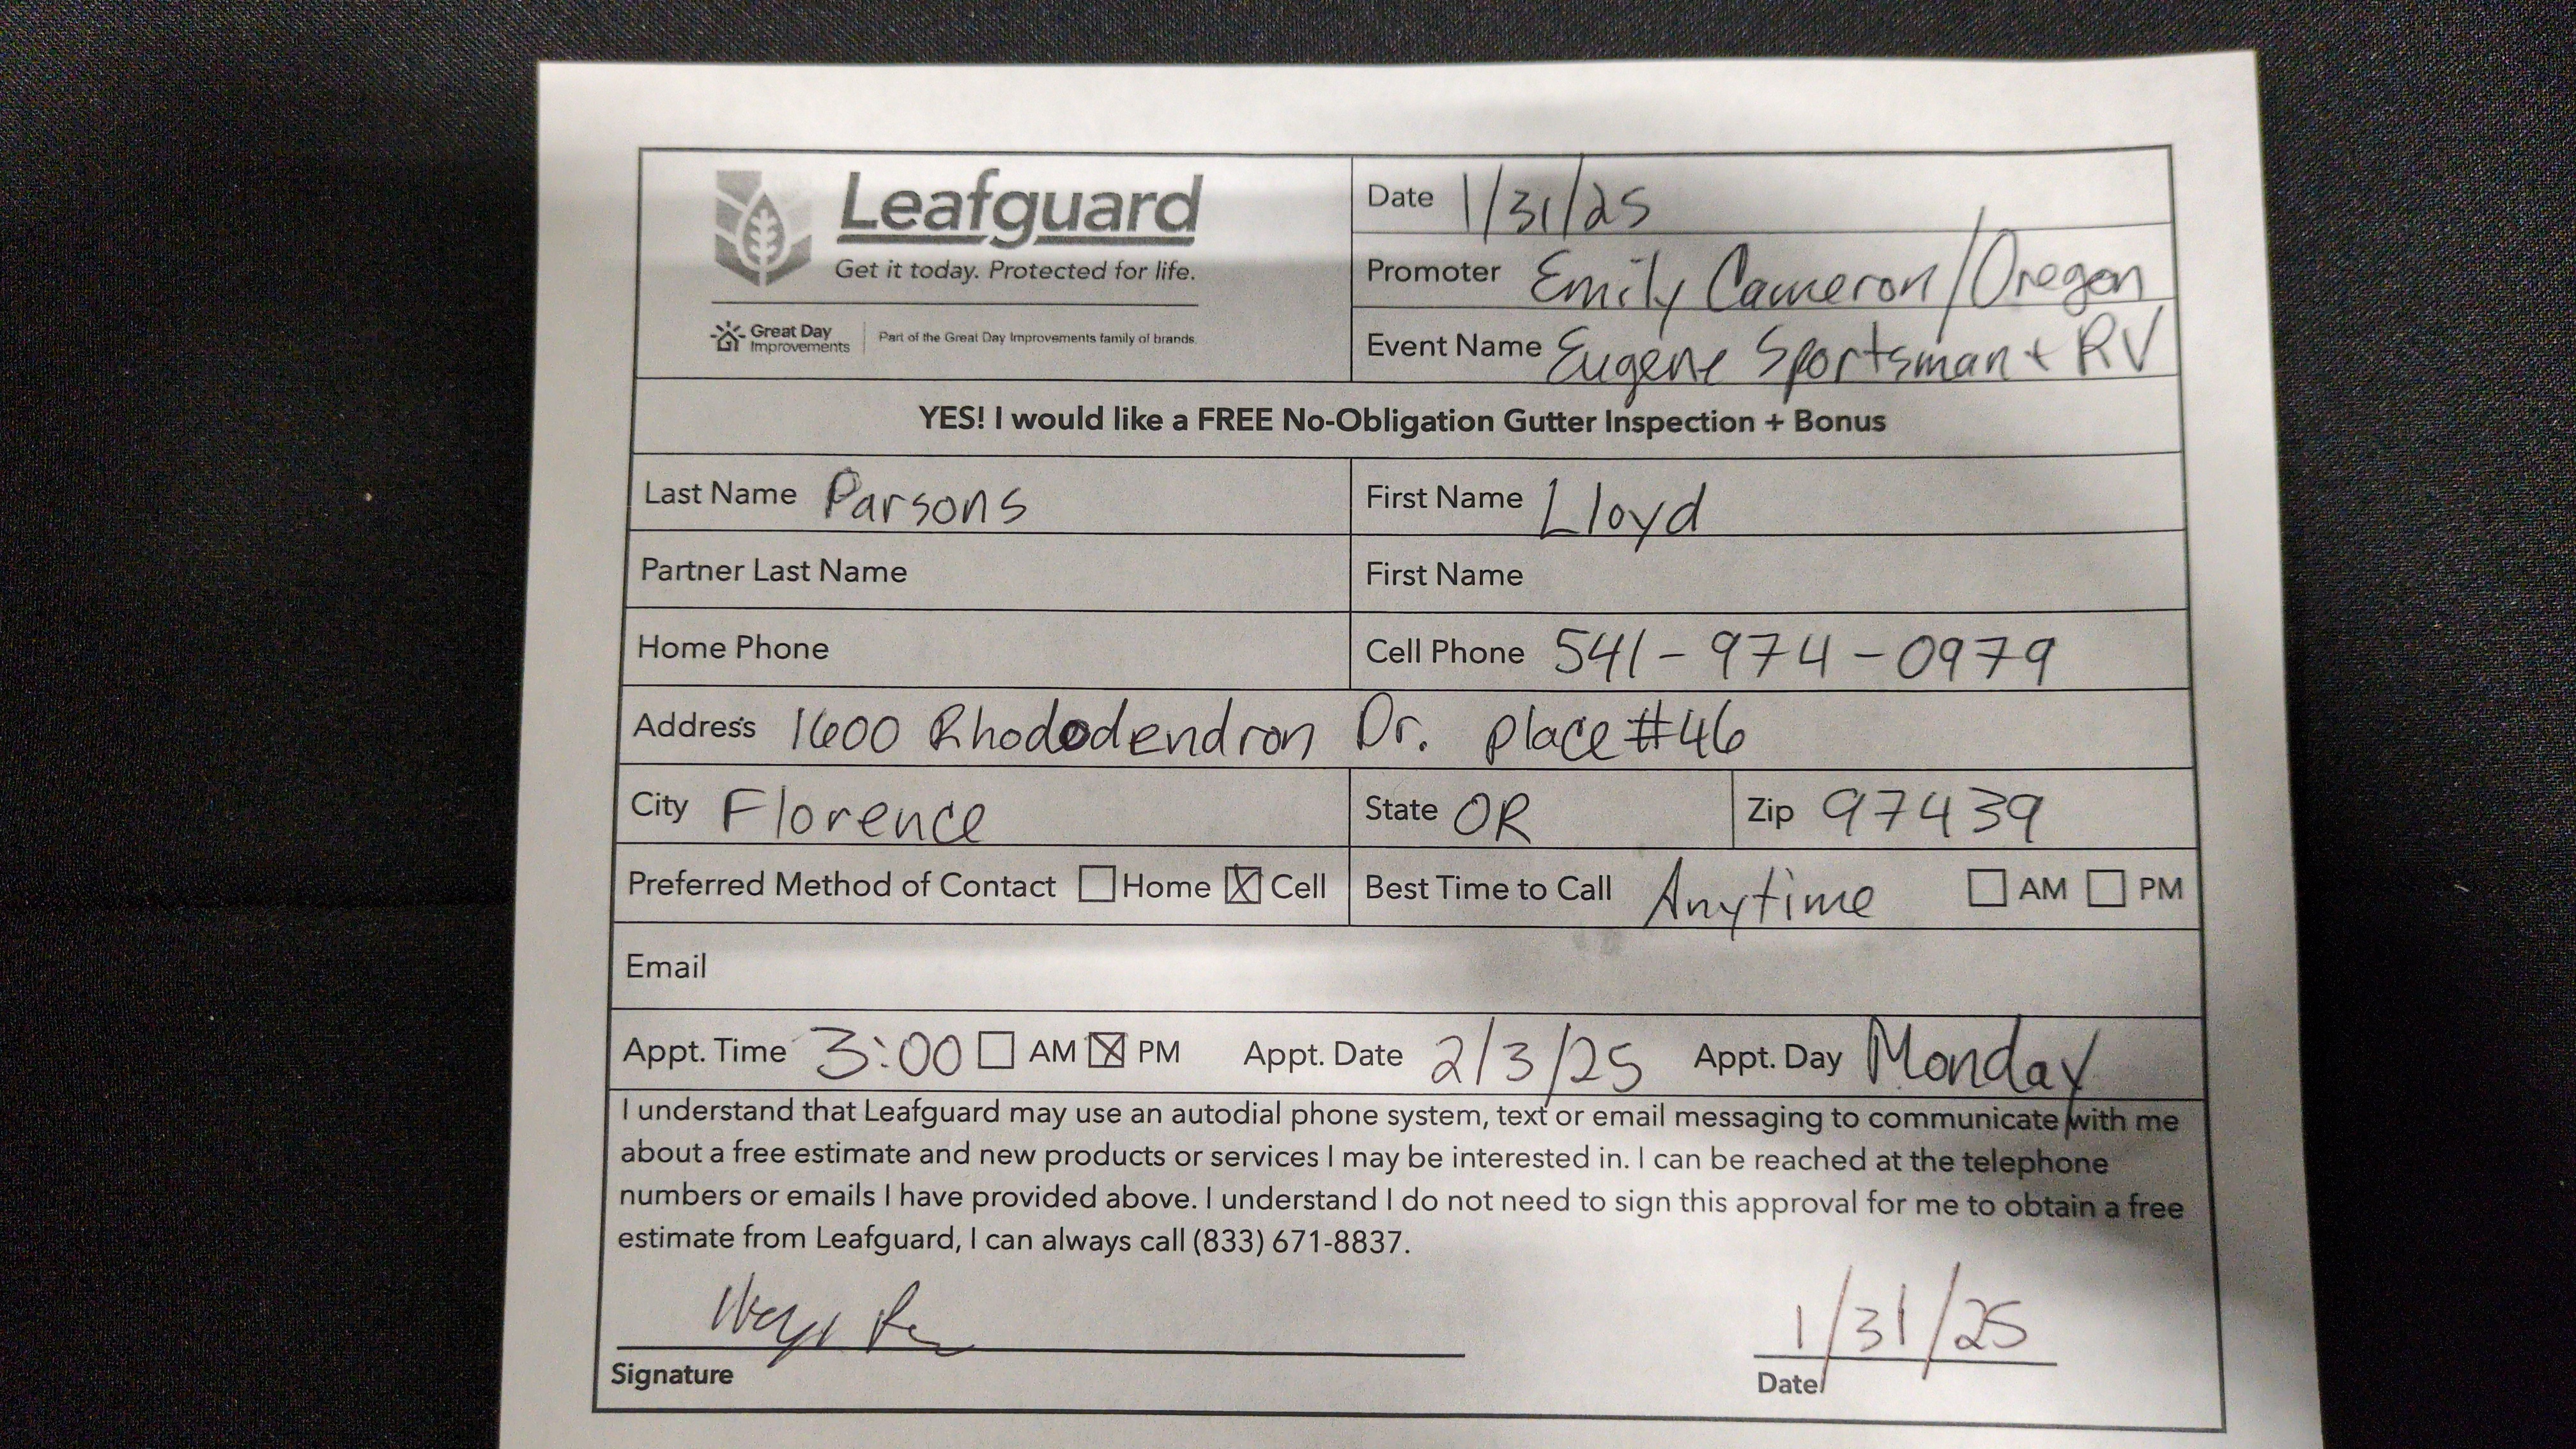 Leafguard
Get it today. Protected for life.
Great Day Improvements | Part of the Great Day Improvements family of brands.
Date 1/31/25
Promoter Emily Cameron/Oregon
Event Name Eugene Sportsman + RV
YES! I would like a FREE No-Obligation Gutter Inspection + Bonus
Last Name Parsons First Name Lloyd
Partner Last Name First Name
Home Phone Cell Phone 541-974-0979
Address 1600 Rhododendron Dr. place #46
City Florence State OR Zip 97439
Preferred Method of Contact ☐ Home ☒ Cell Best Time to Call Anytime ☐ AM ☐ PM
Email
Appt. Time 3:00 ☐ AM ☒ PM Appt. Date 2/3/25 Appt. Day Monday
I understand that Leafguard may use an autodial phone system, text or email messaging to communicate with me
about a free estimate and new products or services I may be interested in. I can be reached at the telephone
numbers or emails I have provided above. I understand I do not need to sign this approval for me to obtain a free
estimate from Leafguard, I can always call (833) 671-8837.
1/31/25
Signature Date